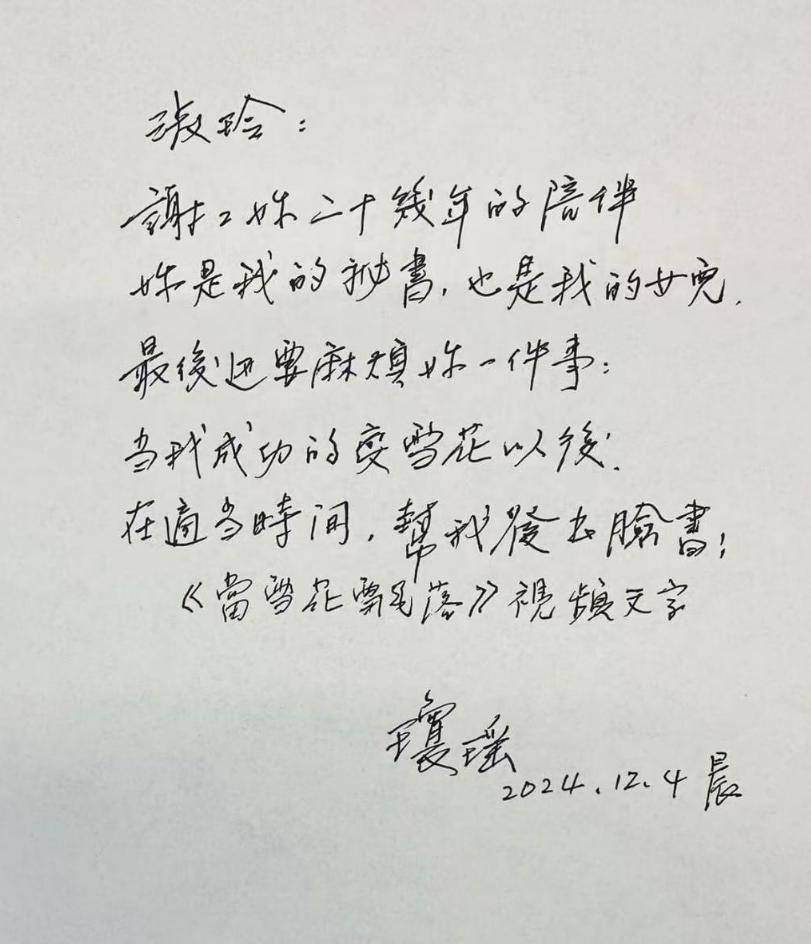 淑玲：
謝謝妳二十幾年的陪伴
妳是我的祕書，也是我的女兒，
最後还要麻煩妳一件事：
当我成功的变雪花以後，
在適当時间，幫我發出臉書：
《當雪花飄落》視頻文字
瓊瑤
2024.12.4 晨